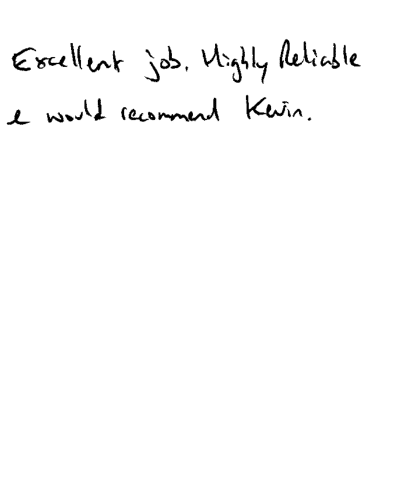 Excellent job. Highly Reliable
& would recommend Kevin.